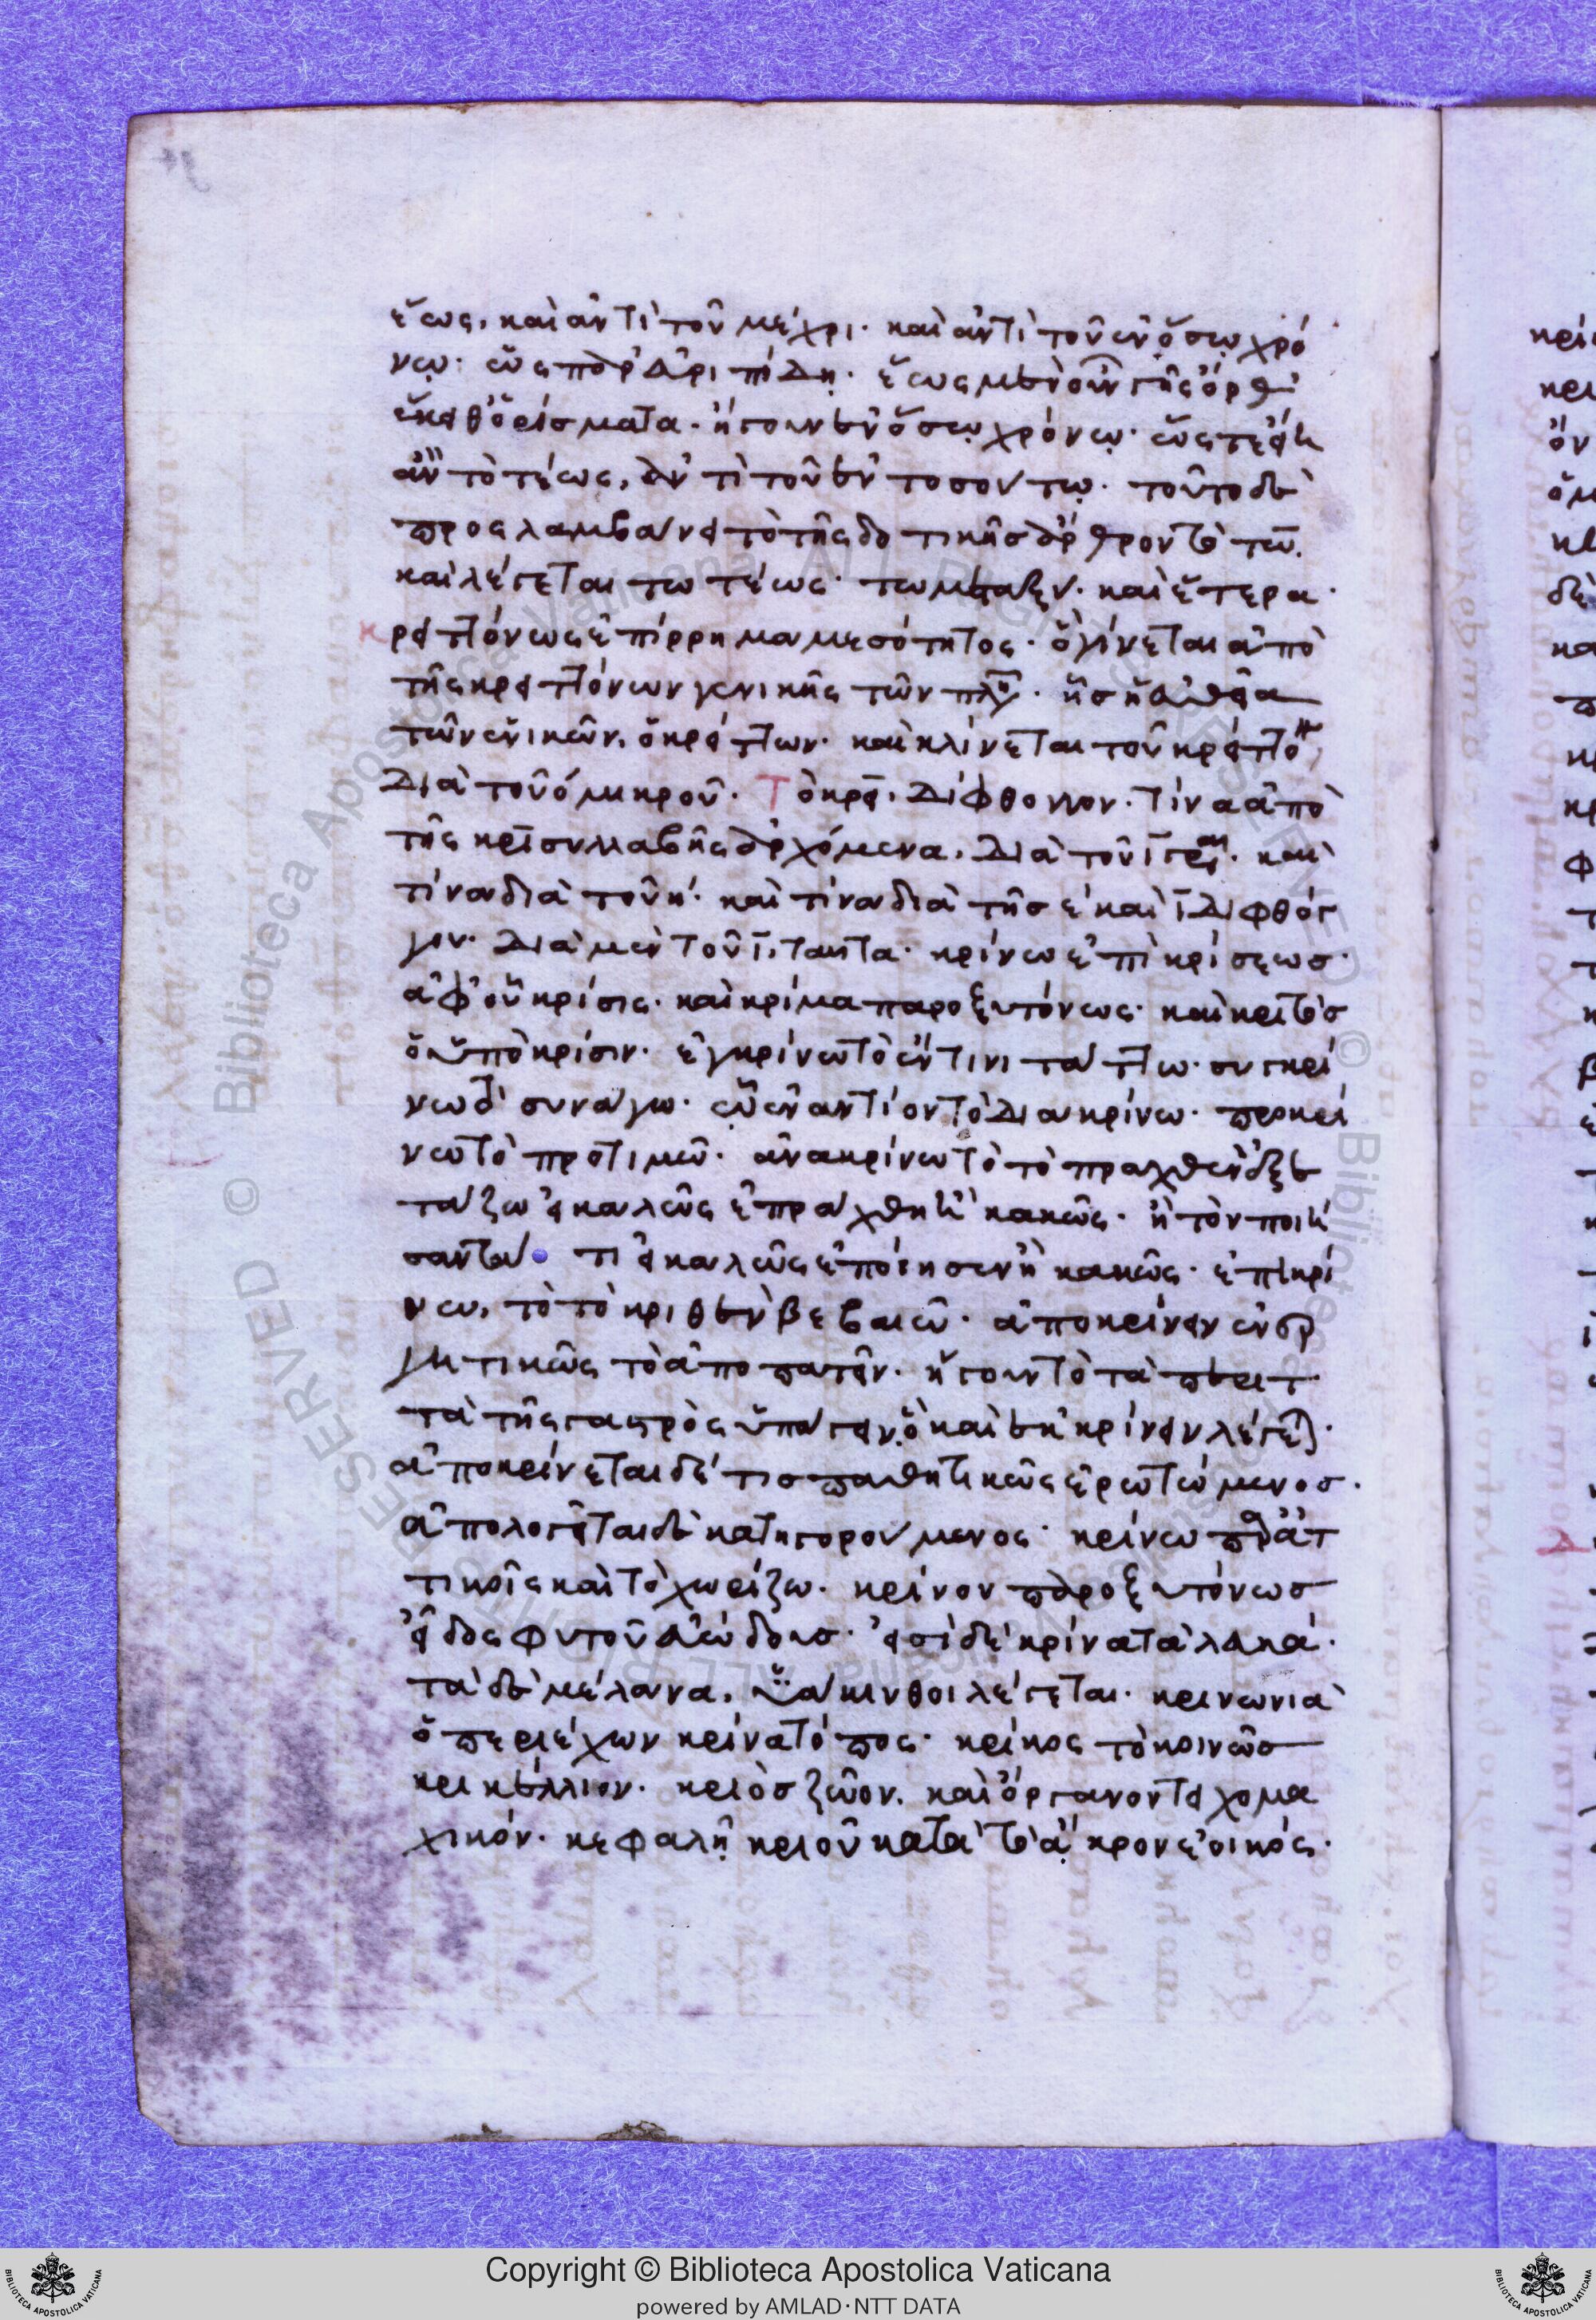 ἕως, καὶ ἀντὶ τοῦ μέχρι· καὶ ἀντὶ τοῦ ἐν ὅσω χρό
νω· ὡς παρ' εὐριπίδη· ἕως μὲν οὖν γῆς ὀρθ
ἤτουν ἐν ὅσω χρόνω· ὥσπερ εἰ
ἀν τὸ τέως, ἀντὶ τοῦ ἐν τοσούτω· τοῦτο δὲ
προσλαμβάνει τὸ τῆς δοτικῆς ἄρθρον τὸ τῶ.
καὶ λέγεται τω τέως· τω μεταξύ· καὶ ἕτερα·
κρειττόνως ἐπίρρημα μεσότητος· ὃ γίνεται ἀπὸ
τῆς κρειττόνων γενικῆς τῶν πλη· ἧς ἡ εὐθεῖα
τῶν ἑνικῶν, ὁ κρείττων· καὶ κλίνεται τοῦ κρείττο
διὰ τοῦ ο μικροῦ· Τὸ κρει, δίφθογγον. τίνα ἀπὸ
τῆς κρι συλλαβῆς ἀρχόμενα, διὰ τοῦ ι γρ· καὶ
τίνα διὰ τοῦ η· καὶ τίνα διὰ τῆς ε καὶ ι διφθόγ
γου· διὰ μὲν τοῦ ι, ταῦτα· κρίνω ἐπὶ κρίσεως·
ἀφ' οὗ κρίσις· καὶ κρίμα παροξυτόνως· καὶ κριτὸς
ὁ ὑπὸ κρίσιν· ἐγκρίνω τὸ ἔν τινι τάττω· συγκρί
νω τὸ συνάγω· ὧ ἐναντίον τὸ διακρίνω· προκρί
νω τὸ προτιμῶ· ἀνακρίνω τὸ τὸ πραχθὲν ἐξε
τάζω εἰ καλῶς ἐπράχθη ἢ κακῶς· ἢ τὸν ποιή
σαντά τι εἰ καλῶς ἐποίησεν ἢ κακῶς· ἐπικρί
νω, τὸ τὸ κριθὲν βεβαιῶ· ἀποκρίνειν ἐνερ
γητικῶς τὸ ἀποπατεῖν· ἤγουν τὸ τὰ περιτ
τὰ τῆς γαστρὸς ὑπάγειν, ὃ καὶ ἐκκρίνειν λέγεται·
ἀποκρίνεται δέ τις παθητικῶς ἐρωτώμενος·
ἀπολογεῖται δὲ κατηγορούμενος· κρίνω παρὰ ἀτ
τικοῖς καὶ τὸ χωρίζω· κρίνον παροξυτόνως
εἶδος φυτοῦ εὐώδους· εἰσὶ δὲ κρίνα τὰ λευκά·
τὰ δὲ μέλανα, ὑάκινθοι λέγεται· κρινωνιὰ
ὁ περιέχων κρίνα τόπος· κρίκος τὸ κοινῶς
κρικέλλιον· κριὸς ζῶον, καὶ ὄργανον τειχομα
χικόν· κεφαλῆ κριοῦ κατὰ τὸ ἄκρον ἐοικός·